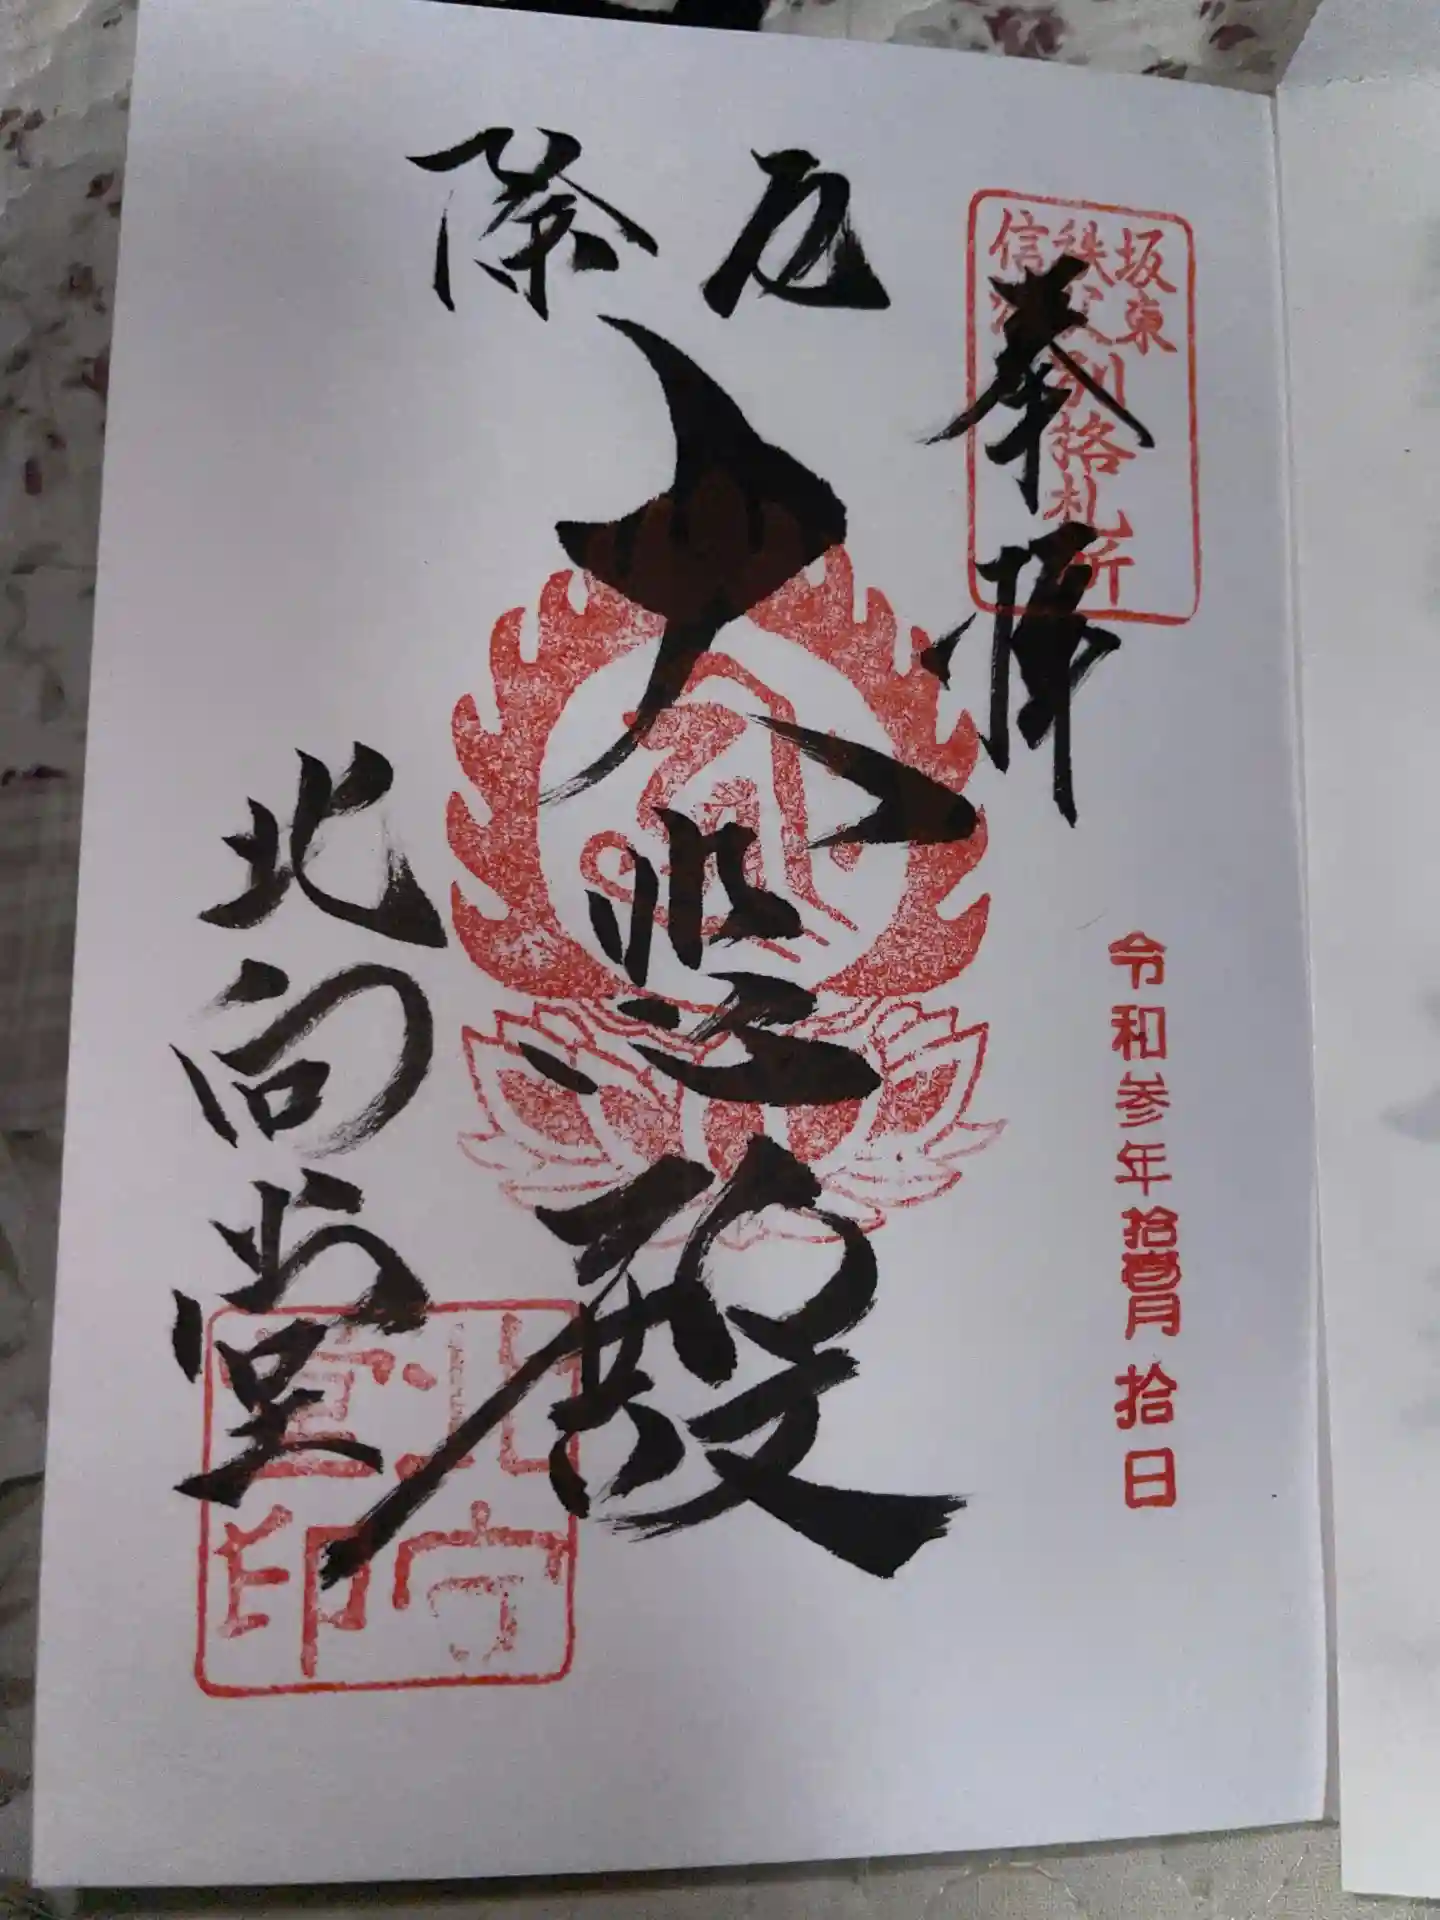 坂東
秩父
信濃
別格札所
奉拝
令和参年拾壱月拾日
厄除
大悲殿
北向堂
北向
堂印